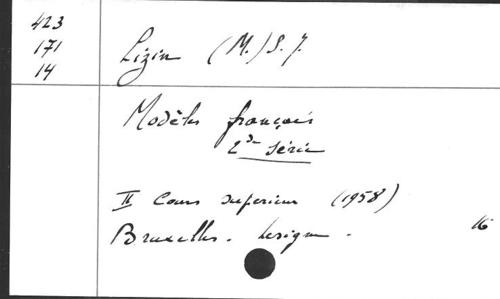 423
171
14
Lizin (M.) S.J.
Modèles français
2de série
II Cours supérieur (1958)
Bruxelles. Lesigne. 16